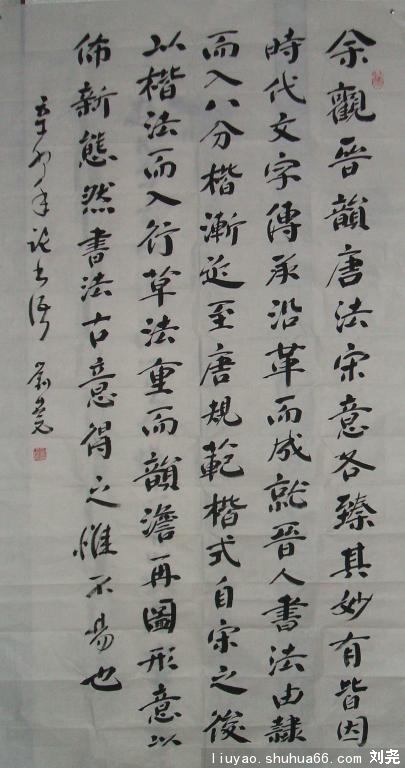 余觀晉韻唐法宋意各臻其妙有皆因
時代文字傳承沿革而成就晉人書法由隸
而入八分楷漸延至唐規範楷式自宋之後
以楷法而入行草法重而韻澹再圖形意以
佈新態然書法古意得之惟不易也
辛卯年论书语 刘尧
liuyao.shuhua66.com 刘尧